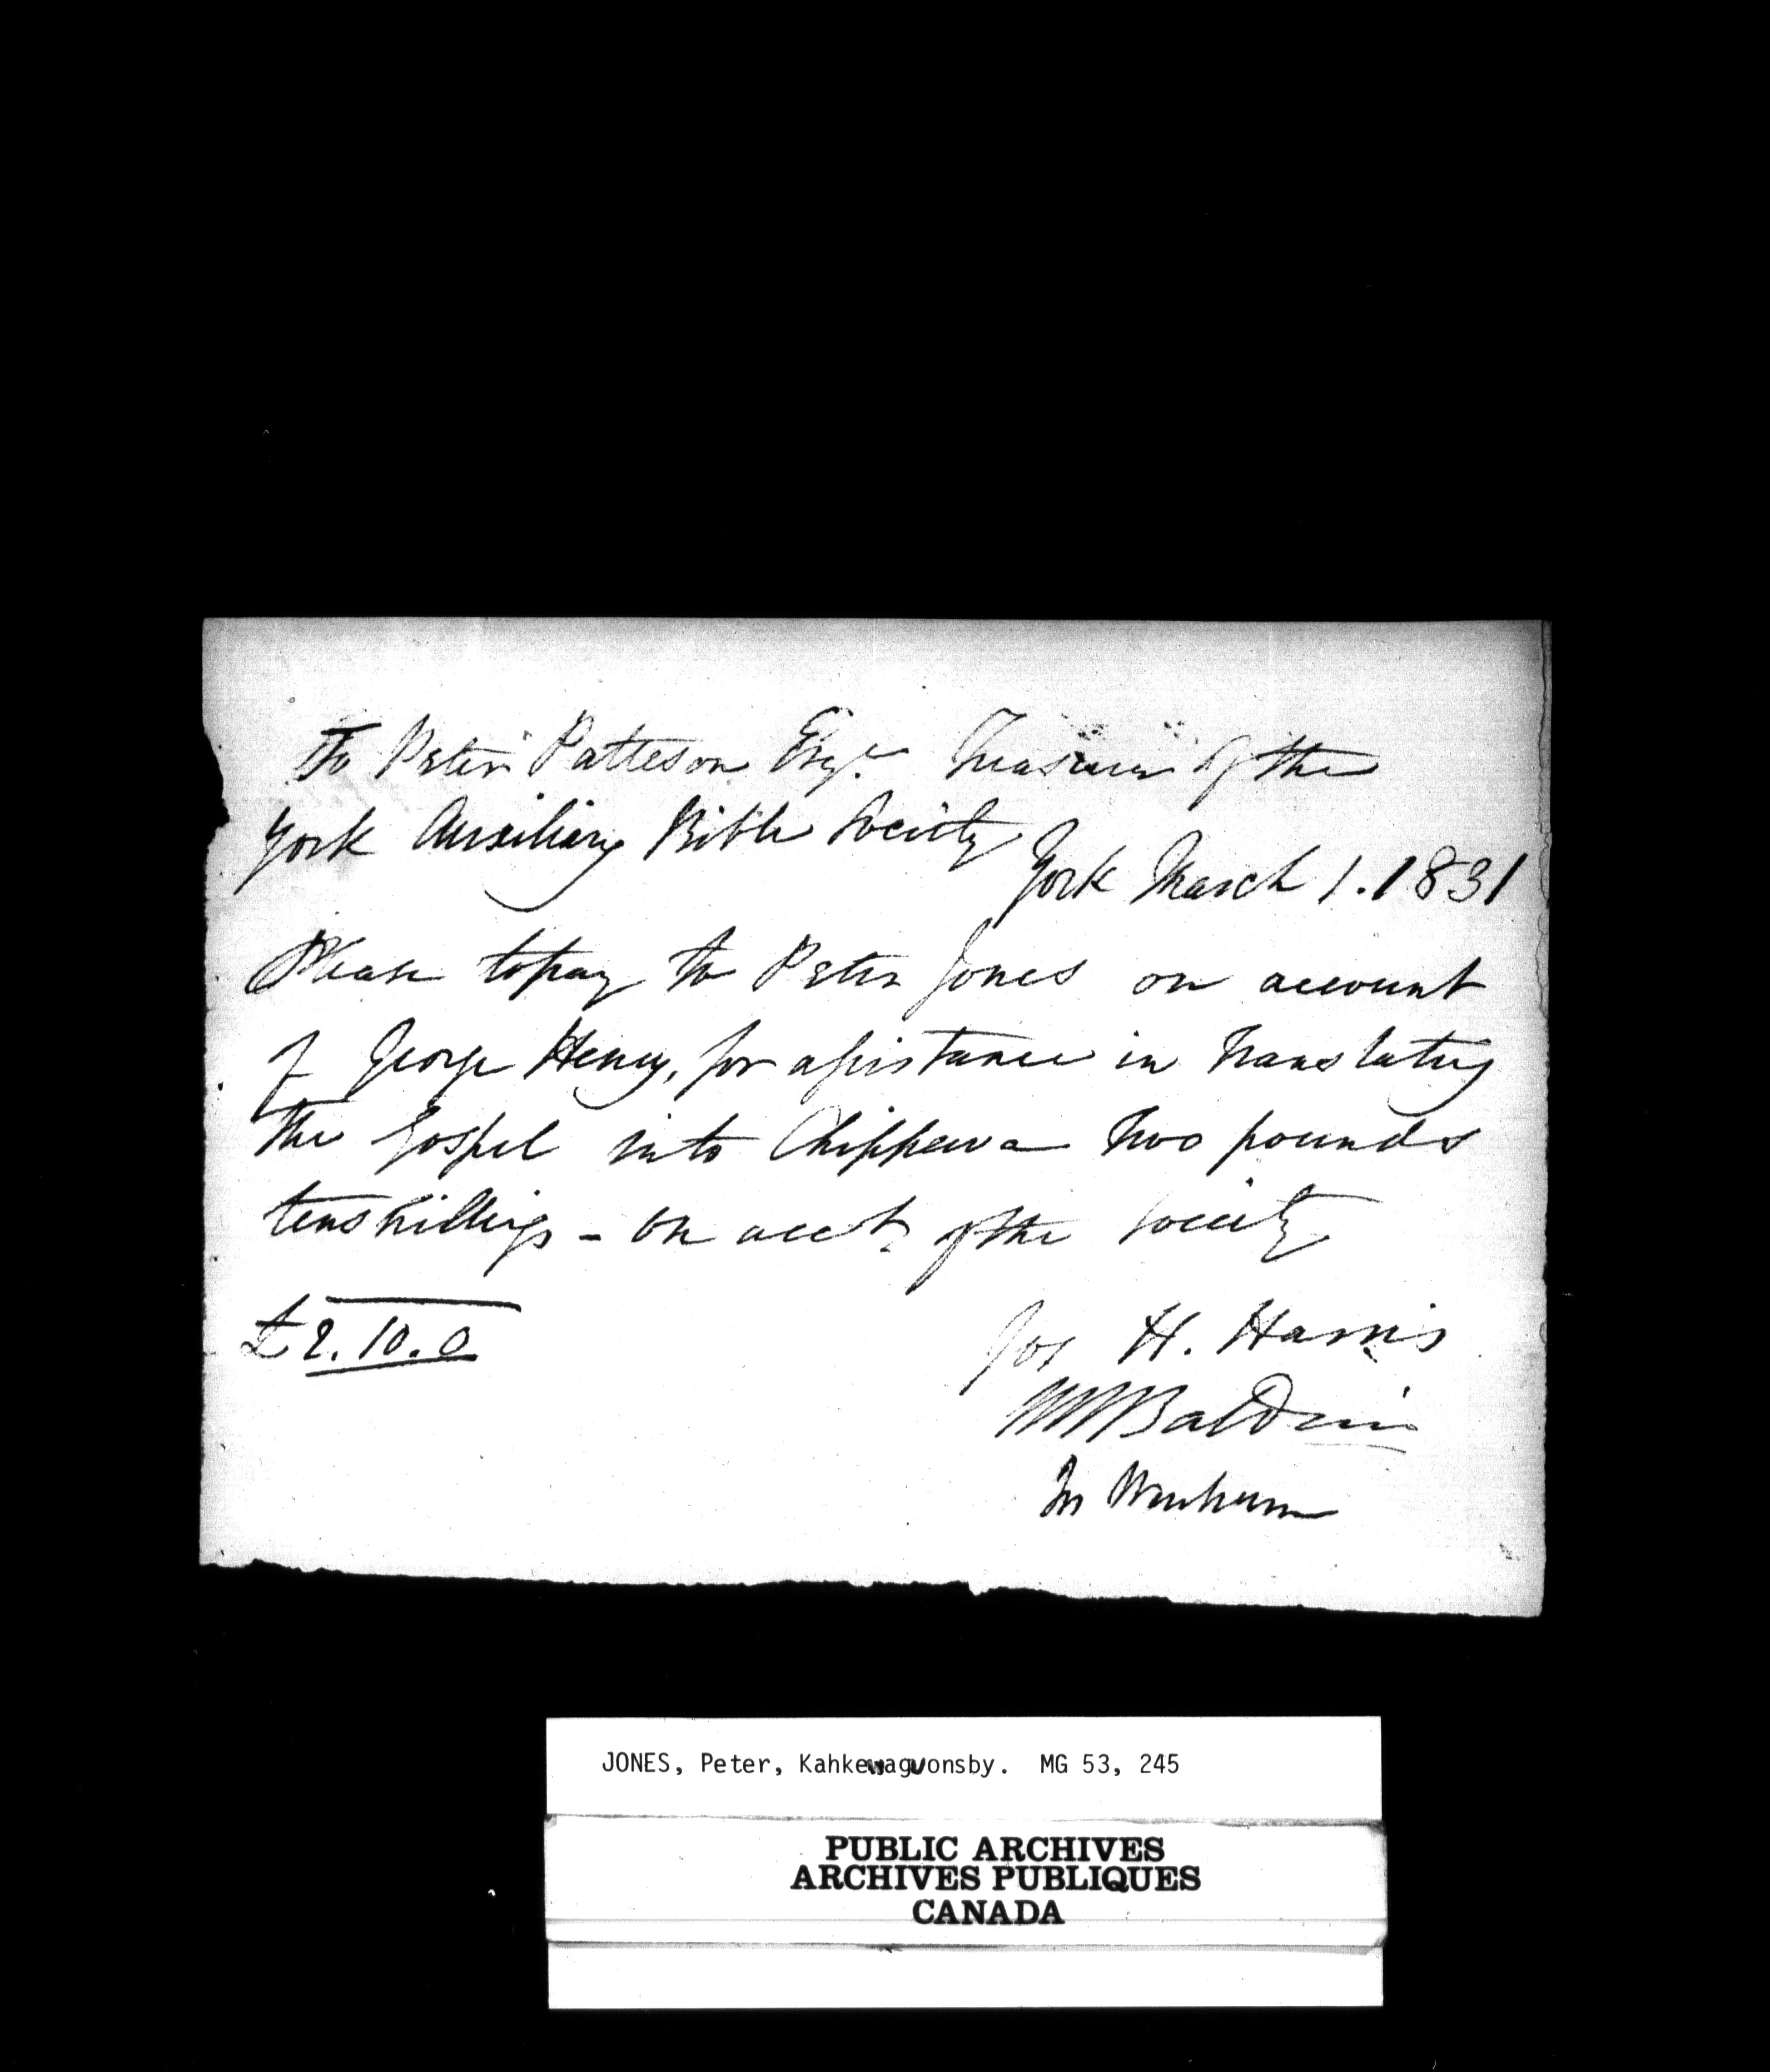 To Peter Patteson Esqr. Treasurer of the
York Auxiliary Bible Society
York March 1. 1831
Please to pay to Peter Jones on account
of George Henry, for assistance in translating
the Gospel into Chippewa Two pounds
ten shillings - on acct. of the Society
£2.10.0
Jos H. Harris
WWBaldwin
JONES, Peter, Kahkewaguonsby. MG 53, 245
PUBLIC ARCHIVES
ARCHIVES PUBLIQUES
CANADA